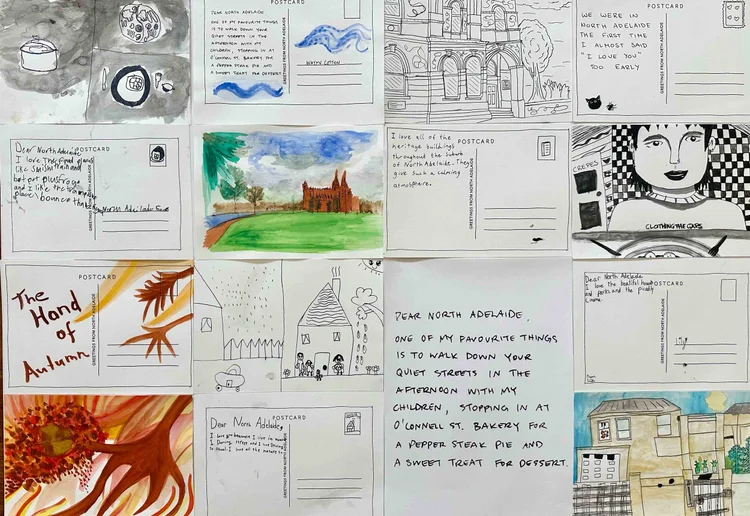 DEAR NORTH ADELAIDE
ONE OF MY FAVOURITE THINGS
IS TO WALK DOWN YOUR
QUIET STREETS IN THE
AFTERNOON WITH MY
CHILDREN, STOPPING IN AT
O'CONNELL ST. BAKERY FOR
A PEPPER STEAK PIE AND
A SWEET TREAT FOR DESSERT.
GREETINGS FROM NORTH ADELAIDE
WE WERE IN
NORTH ADELAIDE
THE FIRST TIME
I ALMOST SAID
"I LOVE YOU"
TOO EARLY
POSTCARD
GREETINGS FROM NORTH ADELAIDE
POSTCARD
Dear North Adelaide
I love
like
and I like
North Adelaide
GREETINGS FROM NORTH ADELAIDE
POSTCARD
I love all of the
heritage buildings
throughout the suburb
of North Adelaide. They
give such a calming
atmosphere.
GREETINGS FROM NORTH ADELAIDE
CREPES
CLOTHING THE GAPS
POSTCARD
The
Hand
of
Autumn
GREETINGS FROM NORTH ADELAIDE
DEAR NORTH ADELAIDE,
ONE OF MY FAVOURITE THINGS
IS TO WALK DOWN YOUR
QUIET STREETS IN THE
AFTERNOON WITH MY
CHILDREN, STOPPING IN AT
O'CONNELL ST. BAKERY FOR
A PEPPER STEAK PIE AND
A SWEET TREAT FOR DESSERT.
POSTCARD
Dear North Adelaide
I love the beautiful
and parks and the
GREETINGS FROM NORTH ADELAIDE
POSTCARD
Dear North Adelaide
GREETINGS FROM NORTH ADELAIDE